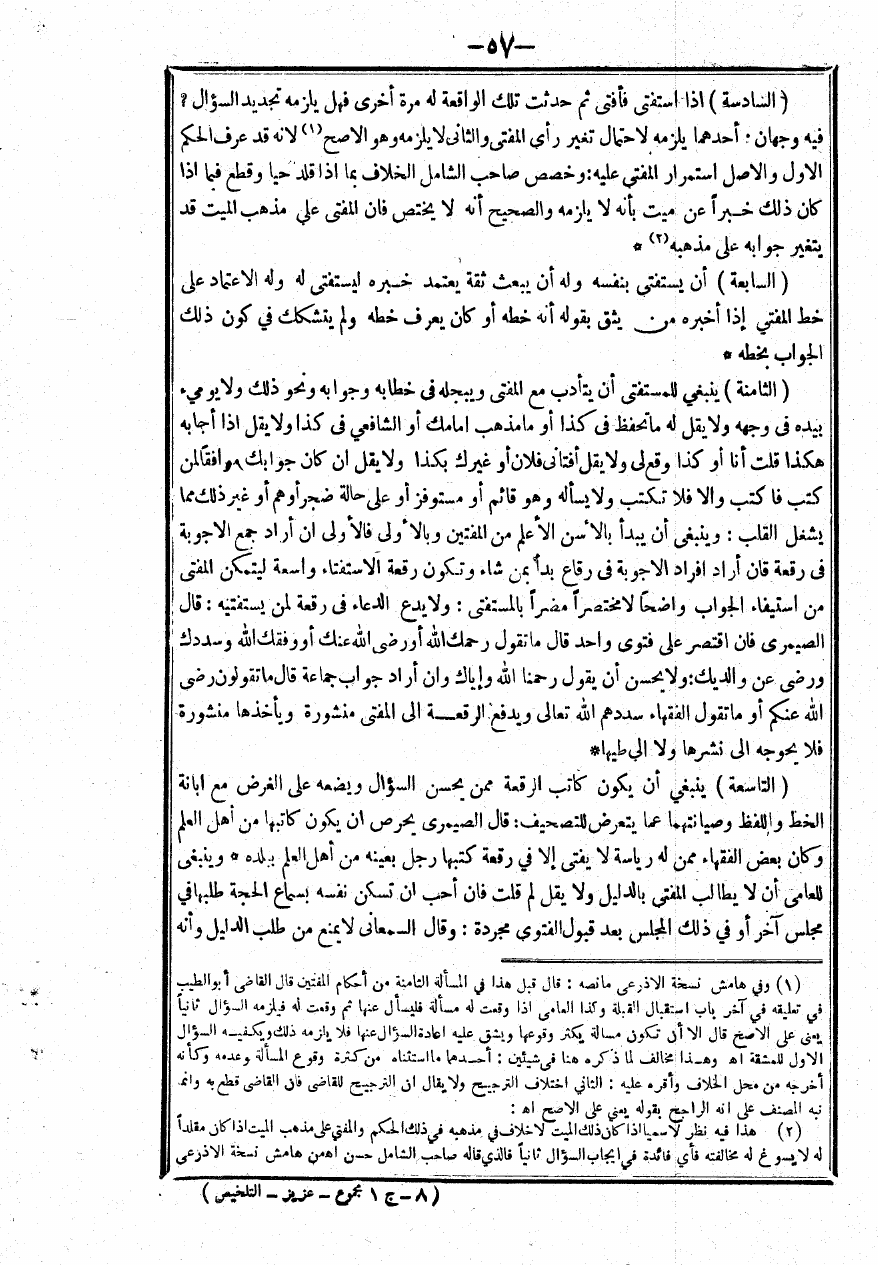 -٥٧-
( السادسة ) اذا استفتى فأفتى ثم حدثت تلك الواقعة له مرة أخرى فهل يلزمه تجديد السؤال ؟
فيه وجهان : أحدهما يلزمه لاحتمال تغير رأى المفتى والثانى لا يلزمه وهو الاصح(١) لانه قد عرف الحكم
الاول والاصل استمرار المفتي عليه:وخصص صاحب الشامل الخلاف بما اذا قلد حيا وقطع فيما اذا
كان ذلك خبراً عن ميت بأنه لا يلزمه والصحيح أنه لا يختص فان المفتى علي مذهب الميت قد
يتغير جوابه على مذهبه(٢) *
( السابعة ) أن يستفتى بنفسه وله أن يبعث ثقة يعتمد خبره ليستفتى له وله الاعتماد على
خط المفتي إذا أخبره من يثق بقوله أنه خطه أو كان يعرف خطه ولم يتشكك في كون ذلك
الجواب بخطه *
( الثامنة ) ينبغي للمستفتى أن يتأدب مع المفتى ويبجله فى خطابه وجوابه ونحو ذلك ولايوميء
بيده فى وجهه ولايقل له ماتحفظ فى كذا أو مامذهب امامك أو الشافعي فى كذا ولايقل اذا أجابه
هكذا قلت أنا أو كذا وقع لى ولايقل أفتانى فلان أو غيرك بكذا ولايقل ان كان جوابك موافقا لمن
كتب فا كتب والا فلا تكتب ولايسأله وهو قائم أو مستوفز أو على حالة ضجر أوهم أو غير ذلك مما
يشغل القلب : وينبغى أن يبدأ بالأسن الأعلم من المفتين وبالأولى فالأولى ان أراد جمع الاجوبة
فى رقعة فان أراد افراد الاجوبة فى رقاع بدأ بمن شاء وتكون رقعة الاستفتاء واسعة ليتمكن المفتى
من استيفاء الجواب واضحا لامختصراً مضراً بالمستفتى : ولايدع الدعاء فى رقعة لمن يستفتيه : قال
الصيمرى فان اقتصر على فتوى واحد قال ماتقول رحمك الله أورضى الله عنك أووفقك الله وسددك
ورضى عن والديك:ولايحسن أن يقول رحمنا الله وإياك وان أراد جواب جماعة قال ماتقولون رضى
الله عنكم أو ماتقول الفقهاء سددهم الله تعالى ويدفع الرقعة الى المفتى منشورة ويأخذها منشورة
فلا يحوجه الى نشرها ولا الي طيها*
( التاسعة ) ينبغي أن يكون كاتب الرقعة ممن يحسن السؤال ويضعه على الغرض مع ابانة
الخط واللفظ وصيانتهما عما يتعرض للتصحيف: قال الصيمرى يحرص ان يكون كاتبها من أهل العلم
وكان بعض الفقهاء ممن له رياسة لا يفتى إلا في رقعة كتبها رجل بعينه من أهل العلم ببلده * وينبغى
للعامى أن لا يطالب المفتي بالدليل ولا يقل لم قلت فان أحب ان تسكن نفسه بسماع الحجة طلبها في
مجلس آخر أو في ذلك المجلس بعد قبول الفتوى مجردة : وقال السمعانى لايمنع من طلب الدليل وأنه
(١) وفي هامش نسخة الاذرعى مانصه : قال قبل هذا في المسألة الثامنة من أحكام المفتين قال القاضى أبوالطيب
في تعليقه في آخر باب استقبال القبلة وكذا العامى اذا وقعت له مسألة فليسأل عنها ثم وقعت له فيلزمه السؤال ثانياً
يعنى على الاصح قال الا أن تكون مسالة يكثر وقوعها ويشق عليه اعادة السؤال عنها فلا يلزمه ذلك ويكفيه السؤال
الاول للمشقة اه وهذا مخالف لما ذكره هنا في شيئين : أحدهما مااستثناه من كثرة وقوع المسألة وعدمه وكأنه
أخرجه من محل الخلاف وأقره عليه : الثاني اختلاف الترجيح ولايقال ان الترجيح للقاضى فان القاضى قطع به وانما
نبه المصنف على انه الراجح بقوله يعني على الاصح اه :
(٢) هذا فيه نظر لاسميا اذا كان ذلك الميت لاخلاف في مذهبه في ذلك الحكم والمفتي على مذهب الميت اذا كان مقلداً
له لايسوغ له مخالفته فأي فائدة في ايجاب السؤال ثانياً فالذي قاله صاحب الشامل حسن اهمن هامش نسخة الاذرعى
( ٨ - ج ١ مجموع - عزيز - التلخيص )